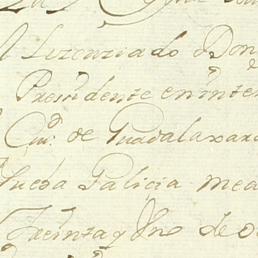 Lizenziado Don
Presidente en inte
Ciu.d de Guadalaxara
Nueba Galicia mea
Treinta y Uno de O